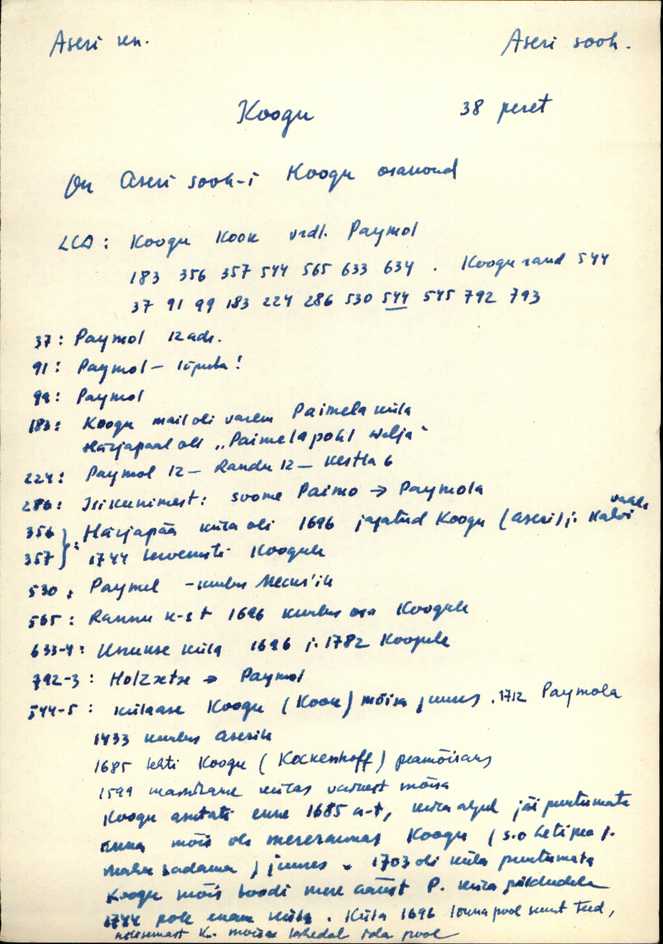 Aseri khn.
Aseri sooh.
Koogu
38 peret
On Aseri sooh-i Koogu osakond
LCD: Koogu Kook vrdl. Paymol
183 356 357 544 565 633 634 . Koogu rand 544
37 91 99 183 224 286 530 544 545 792 793
37: Paymol 12 adr.
91: Paymol - lõpuba!
99: Paymol
183: Koogu mail oli varem Paimela küla
Härjapaal oli „Paimela pohl wälja“
224: Paymol 12 - Randu 12 - Kestla 6
286: Isikunimest: soome Paimo → Paymola
356 357 }: Härjapää küla oli 1696 jagatud Koogu (Aseri) j. Kalvi vahel
1744 tervenisti Koogule
530: Paymel - kuulus
565: Rannu k-st 1696 kuulus osa Koogule
633-4: küla 1696 j. 1782 Koogule
792-3: Holzxetxe → Paymol
544-5: külaase Koogu (Kook) mõisa juures. 1712 Paymola
1433 kuulus Aserile
1685 tehti Koogu (Kockenhoff) peamõisaks
1599 mainitakse külas väikest mõisa
Koogu asutati enne 1685 a-t, küla algul jäi puutumata
enne mõis oli mererannas Koogu (s.o Letipea j.
Mahu sadama) juures. 1703 oli küla puutumata
Koogu mõis toodi mere äärest P. küla põldudele
1744 pole enam küla. Küla 1696 lõuna pool suurt teed,
K. mõisa lähedal ida pool